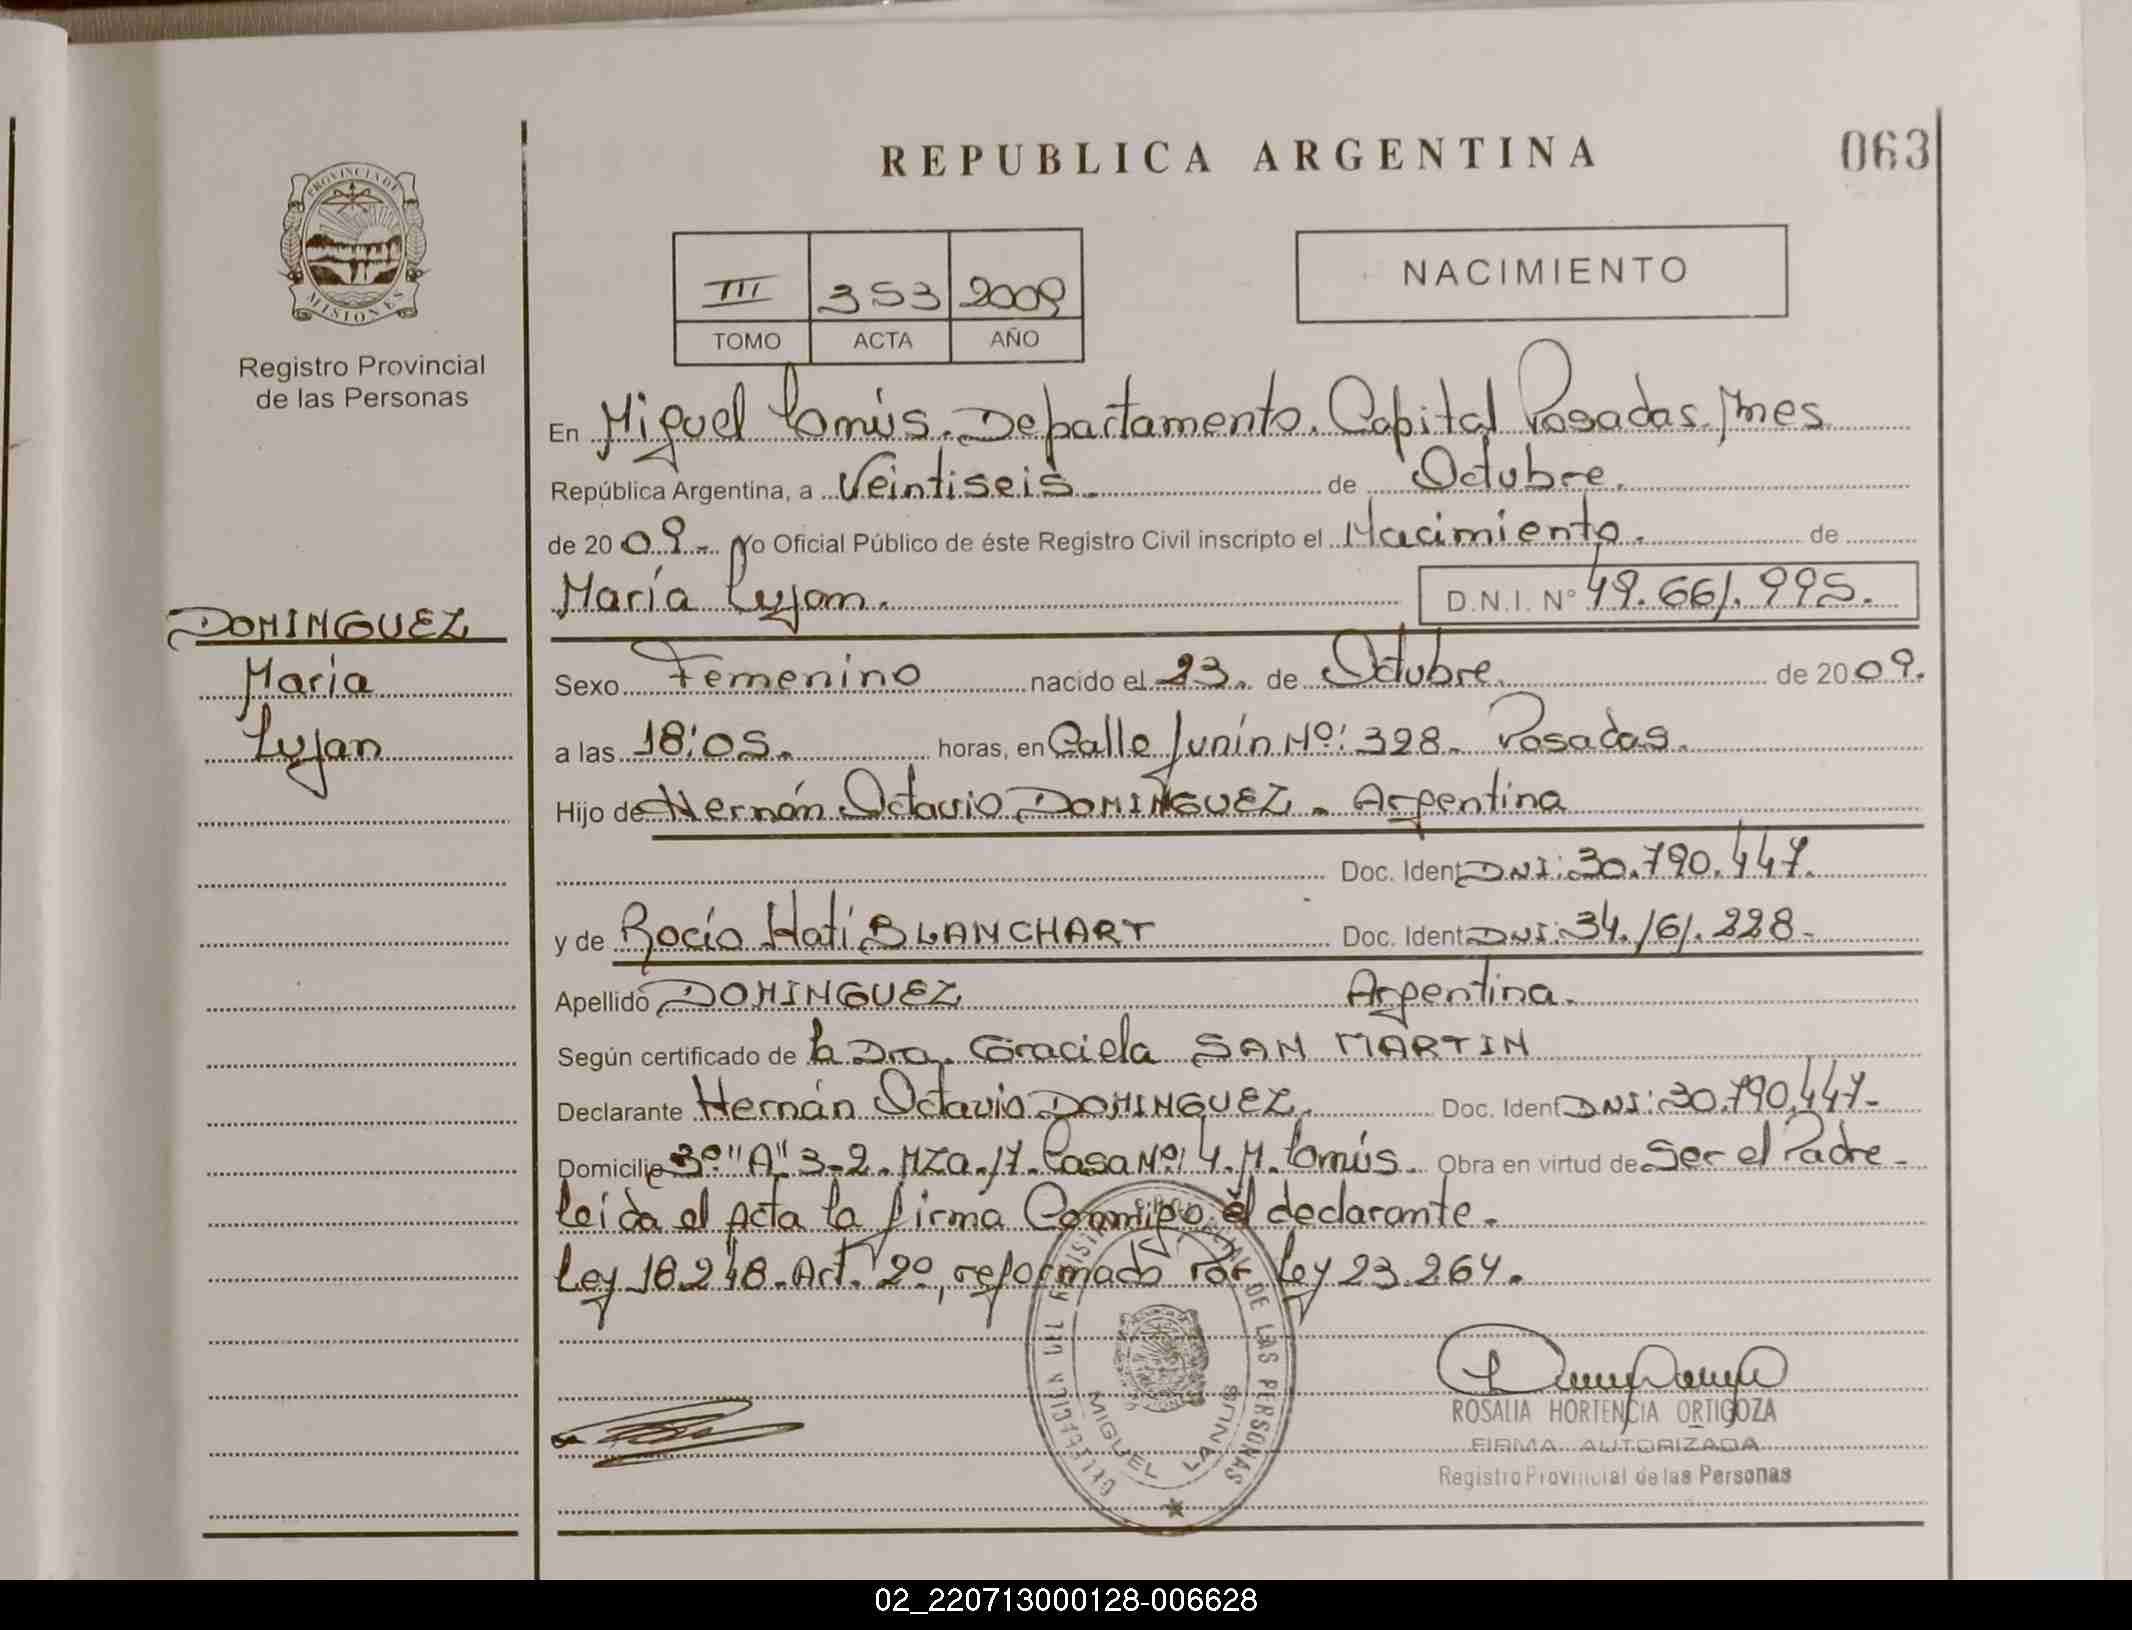 REPUBLICA ARGENTINA
063
PROVINCIA DE
MISIONES
Registro Provincial
de las Personas
III 353 2009
TOMO ACTA AÑO
NACIMIENTO
En Miguel Lanús. Departamento. Capital Posadas. Mnes
República Argentina, a Veintiseis. de Octubre.
de 2009.- Yo Oficial Público de éste Registro Civil inscripto el Nacimiento. de
María Lujan. D.N.I. N° 49.661.995.
DOMINGUEZ
Maria
Lujan
Sexo Femenino nacido el 23. de Octubre de 2009.
a las 18:05. horas, en Calle Junín Nº: 328. Posadas.
Hijo de Hernán Octavio DOMINGUEZ. Argentina
Doc. Ident DNI: 30.790.447.
y de Rocío Natí BLANCHART Doc. Ident DNI: 34.161.228.
Apellido DOMINGUEZ Argentina.
Según certificado de la Dra. Graciela SAN MARTIN
Declarante Hernán Octavio DOMINGUEZ. Doc. Ident DNI: 30.790.447.
Domicilio 3º "A" 3-2. MZa. 17. Casa Nº: 4. M. Lanús. Obra en virtud de Ser el Padre
Leída el acta la firma Conmigo el declarante.
Ley 18.248. Art. 2º, reformado Por Ley 23.264.
DE LAS PERSONAS
MIGUEL LANUS
ROSALIA HORTENCIA ORTIGOZA
FIRMA AUTORIZADA
Registro Provincial de las Personas
02_220713000128-006628